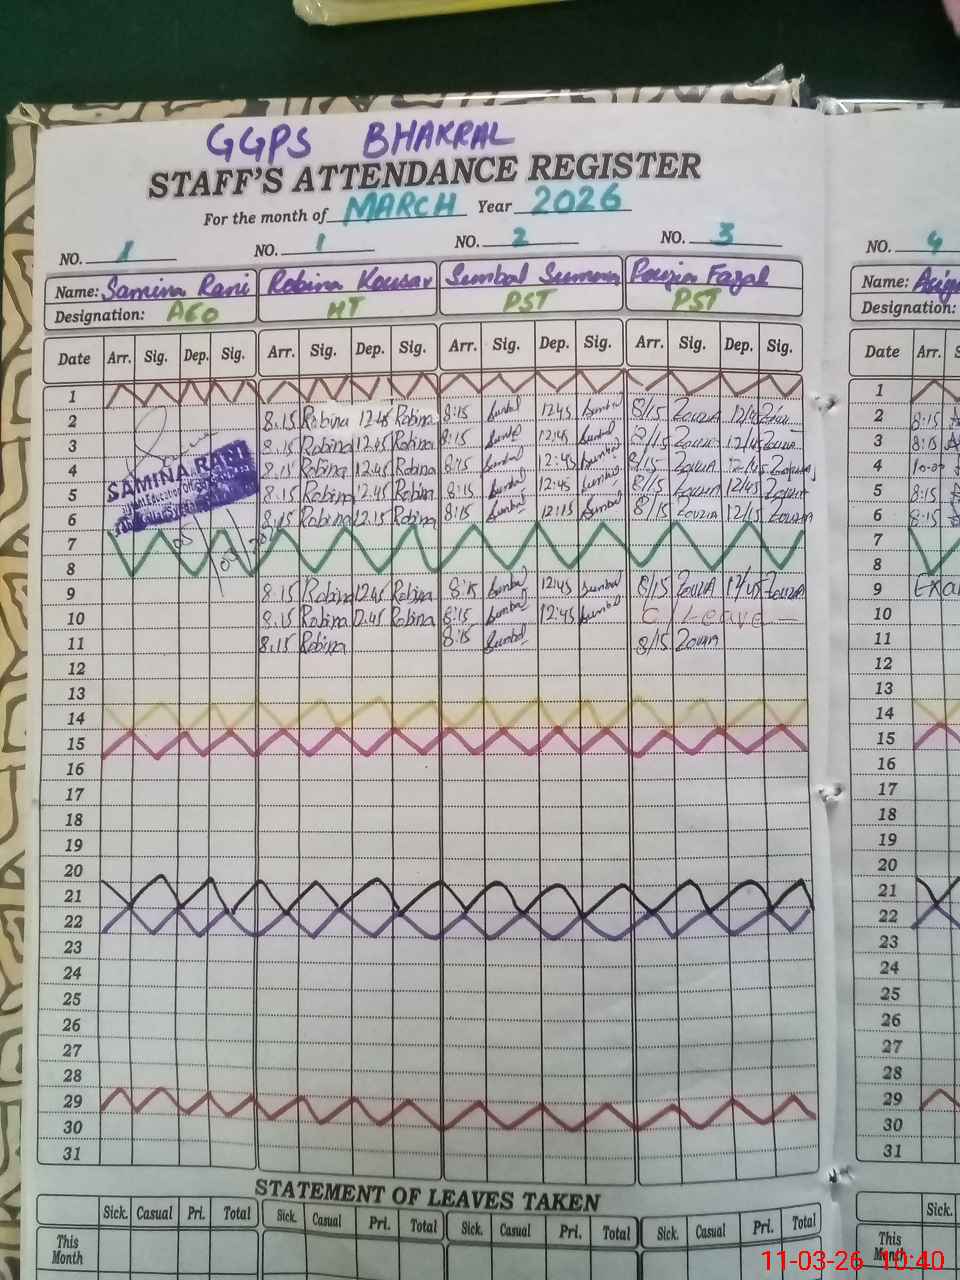 GGPS BHAKRAL
STAFF'S ATTENDANCE REGISTER
For the month of MARCH Year 2026
NO. 1 NO. 1 NO. 2 NO. 3 NO. 4
Name: Samina Rani Robina Kousar Sumbal Name:
Designation: AEO HT PST PST Designation:
Date Arr. Sig. Dep. Sig. Arr. Sig. Dep. Sig. Arr. Sig. Dep. Sig. Arr. Sig. Dep. Sig. Date Arr.
1 1
2 8.15 Robina 12.45 Robina 8:15 Sumbal 12:45 Sumbal 8/15 ZOUZIA 12/45 2 8:15
3 8.15 Robina 12.45 Robina 8:15 Sumbal 12:45 Sumbal 8/15 12/45 3 8:15
SAMINA RANI
4 8.15 Robina 12.45 Robina 8:15 Sumbal 12:45 Sumbal 8/15 12/45 4
5 8.15 Robina 12.45 Robina 8:15 Sumbal 12:45 Sumbal 8/15 12/45 5 8:15
6 8.15 Robina 12.15 Robina 8:15 Sumbal 12:15 Sumbal 8/15 ZOUZIA 12/15 ZOUZIA 6 8:15
7 7
8 8
9 8.15 Robina 12.45 Robina 8:15 Sumbal 12:45 Sumbal 8/15 12/45 9
10 8.15 Robina 12.45 Robina 8:15 Sumbal 12:45 Sumbal C/Leave 10
11 8.15 Robina 8:15 Sumbal 8/15 11
12 12
13 13
14 14
15 15
16 16
17 17
18 18
19 19
20 20
21 21
22 22
23 23
24 24
25 25
26 26
27 27
28 28
29 29
30 30
31 31
STATEMENT OF LEAVES TAKEN
Sick. Casual Pri. Total Sick. Casual Pri. Total Sick. Casual Pri. Total Sick. Casual Pri. Total Sick.
This Month This Month
11-03-26 10:40